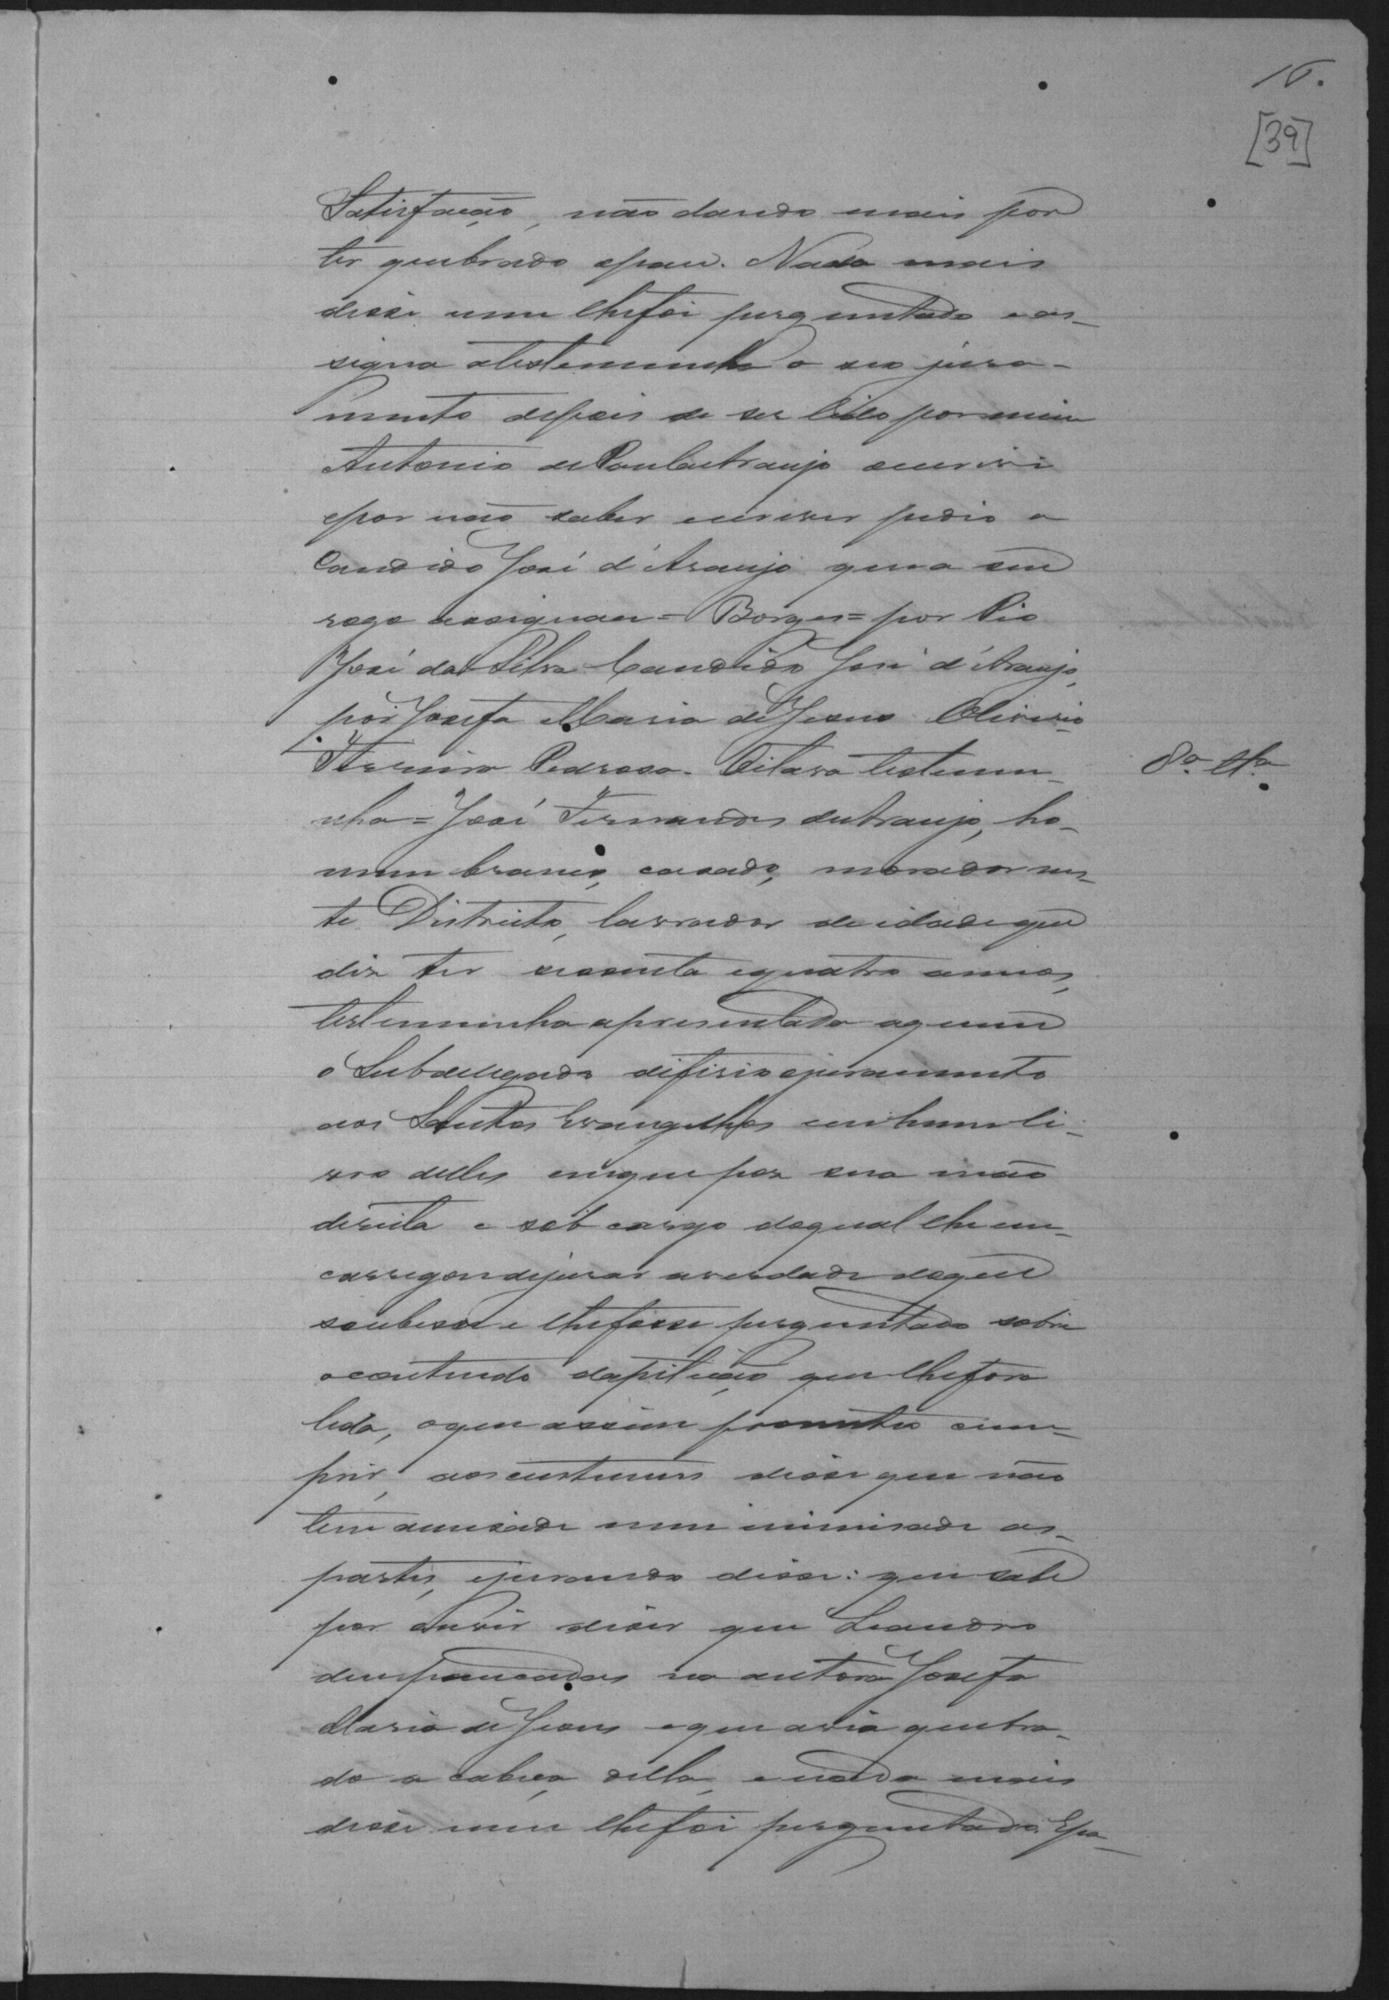 16.
[39]
Satisfação, não dando mais por
ter quebrado opau. Nada mais
disse nem lhefoi perguntado eas-
signa atestemunha o seu jura-
mento depois de ser lido pormim
Antonio dePaulaAraujo escrivi
epor não saber escrever pedio a
Candido José d'Araujo que a seu
rogo assignou = Borges = por Pio
José daSilva Candido José d'Araujo,
por Josefa Maria deJesus Oliverio
Pedroso. Oitava testemu-
nha = José Fernandes deAraujo, ho-
mem branco, casado, morador nes-
te Districto, lavrador deidade que
diz ter sessenta equatro annos,
testemunha apresentada aquem
o Subdelegado difirio ojuramento
aos Santos Evangelhos em hum li-
vro delles emque poz sua mão
direita e sob cargo doqual lhe en-
carregou dejurar averdade doque
soubesse e lhefosse perguntado sobre
ocontendo dapitição que lhefora
lida, oque assim prometeo cum-
prir, aoscustumes disse que não
tem amisade nem inimisade as
partes, ejurando disse: que sabe
por ouvir diser que Leandro
deu pancadas na autora Josefa
Maria deJesus eque avia quebra-
do a cabeça della, enada mais
disse nem lhefoi perguntado. Epo-
8ª Tª